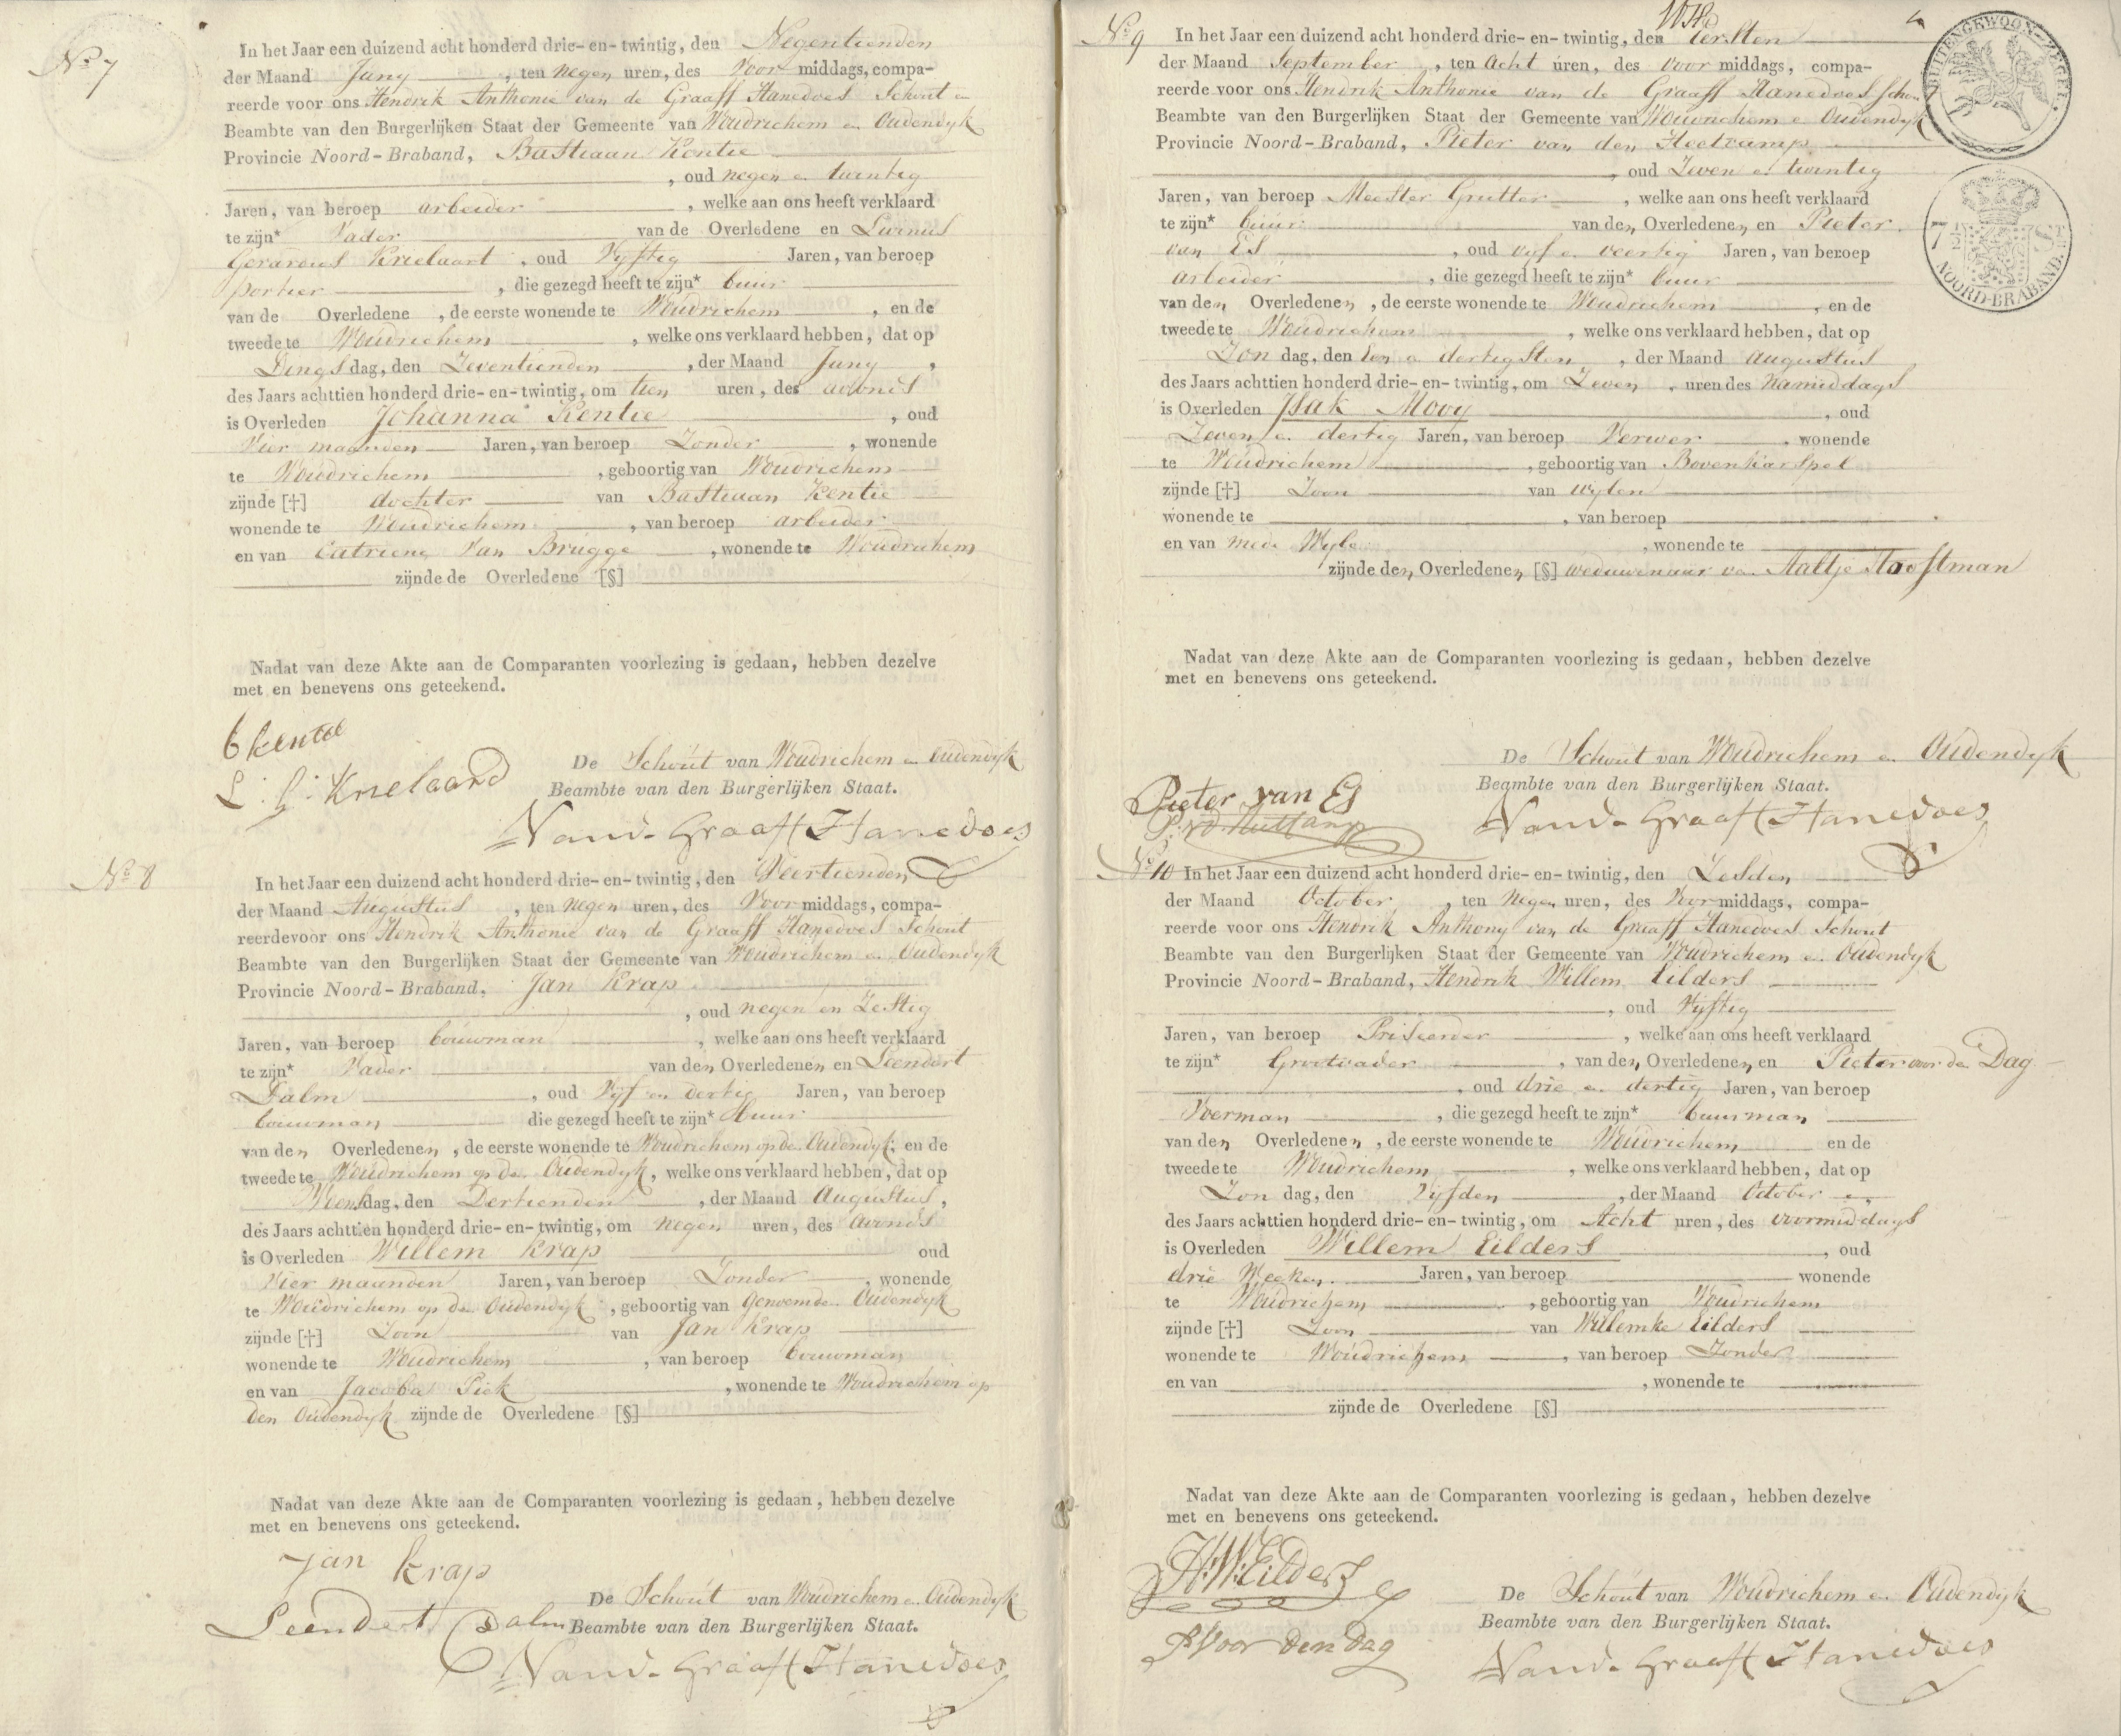 No 7
In het Jaar een duizend acht honderd drie-en-twintig, den Negentienden
der Maand Juny, ten negen uren, des Voor middags, compa-
reerde voor ons Hendrik Anthonie van de Graaff Hanedoes Schout en
Beambte van den Burgerlijken Staat der Gemeente van Woudrichem en Oudendyk
Provincie Noord-Braband, Bastiaan Kentie
, oud negen en twintig
Jaren, van beroep arbeider, welke aan ons heeft verklaard
te zijn* Vader van de Overledene en Livinus
Gerardus Krielaart, oud Vyftig Jaren, van beroep
portier, die gezegd heeft te zijn* buur
van de Overledene, de eerste wonende te Woudrichem, en de
tweede te Woudrichem, welke ons verklaard hebben, dat op
Dings dag, den Zeventienden, der Maand Juny,
des Jaars achttien honderd drie-en-twintig, om tien uren, des avonds
is Overleden Johanna Kentie, oud
Vier maanden Jaren, van beroep Zonder, wonende
te Woudrichem, geboortig van Woudrichem
zijnde [†] dochter van Bastiaan Kentie
wonende te Woudrichem, van beroep arbeider
en van Catriena Van Brugge, wonende te Woudrichem
zijnde de Overledene [§]
Nadat van deze Akte aan de Comparanten voorlezing is gedaan, hebben dezelve
met en benevens ons geteekend.
b kentie
L: G: Krielaard
De Schout van Woudrichem en Oudendyk
Beambte van den Burgerlijken Staat.
Van d. Graaff Hanedoes
No 8
In het Jaar een duizend acht honderd drie-en-twintig, den Veertienden
der Maand Augustus, ten negen uren, des Voor middags, compa-
reerde voor ons Hendrik Anthonie van de Graaff Hanedoes Schout
Beambte van den Burgerlijken Staat der Gemeente van Woudrichem en Oudendyk
Provincie Noord-Braband, Jan Krap
, oud negen en Zestig
Jaren, van beroep bouwman, welke aan ons heeft verklaard
te zijn* Vader van den Overledenen en Leendert
Dalm, oud Vyf en dertig Jaren, van beroep
bouwman die gezegd heeft te zijn* buur
van den Overledenen, de eerste wonende te Woudrichem op den Oudendyk, en de
tweede te Woudrichem op den Oudendyk, welke ons verklaard hebben, dat op
Wiensdag, den Dertienden, der Maand Augustus,
des Jaars achttien honderd drie-en-twintig, om negen uren, des avonds
is Overleden Willem Krap oud
Vier maanden Jaren, van beroep Zonder, wonende
te Woudrichem op den Oudendyk, geboortig van Genoemde Oudendyk
zijnde [†] Zoon van Jan Krap
wonende te Woudrichem, van beroep bouwman
en van Jacoba Piek, wonende te Woudrichem op
den Oudendyk zijnde de Overledene [§]
Nadat van deze Akte aan de Comparanten voorlezing is gedaan, hebben dezelve
met en benevens ons geteekend.
Jan krap
Leendert Dalm
De Schout van Woudrichem en Oudendyk
Beambte van den Burgerlijken Staat.
Van d. Graaff Hanedoes
No 9
In het Jaar een duizend acht honderd drie-en-twintig, den Eersten
der Maand September, ten Acht uren, des Voor middags, compa-
reerde voor ons Hendrik Anthonie van de Graaff Hanedoes Schout
Beambte van den Burgerlijken Staat der Gemeente van Woudrichem en Oudendyk
Provincie Noord-Braband, Pieter van den
, oud Zeven en twintig
Jaren, van beroep Meester Grutter, welke aan ons heeft verklaard
te zijn* buur van den Overledenen en Pieter
van Es, oud vyf en veertig Jaren, van beroep
arbeider, die gezegd heeft te zijn* buur
van den Overledenen, de eerste wonende te Woudrichem, en de
tweede te Woudrichem, welke ons verklaard hebben, dat op
Zon dag, den Een en dertigsten, der Maand Augustus
des Jaars achttien honderd drie-en-twintig, om Zeven uren des namiddags
is Overleden Isak Mooy, oud
Zeven en dertig Jaren, van beroep Verwer, wonende
te Woudrichem, geboortig van Bovenkarspel
zijnde [†] Zoon van wylen
wonende te, van beroep
en van mede Wyle, wonende te
zijnde den Overledenen [§] weduwenaar van Aaltje
Nadat van deze Akte aan de Comparanten voorlezing is gedaan, hebben dezelve
met en benevens ons geteekend.
Pieter van Es
De Schout van Woudrichem en Oudendyk
Beambte van den Burgerlijken Staat.
Van d. Graaff Hanedoes
BUITENGEWOON-ZEGEL.
7½ ST
NOORD-BRABAND.
No 10
In het Jaar een duizend acht honderd drie-en-twintig, den Zesden
der Maand October, ten negen uren, des Voor middags, compa-
reerde voor ons Hendrik Anthony van de Graaff Hanedoes Schout
Beambte van den Burgerlijken Staat der Gemeente van Woudrichem en Oudendyk
Provincie Noord-Braband, Hendrik Willem Eilders
, oud Vyftig
Jaren, van beroep, welke aan ons heeft verklaard
te zijn* Grootvader, van den Overledenen en Pieter voor den Dag
, oud drie en dertig Jaren, van beroep
Voerman, die gezegd heeft te zijn* buurman
van den Overledenen, de eerste wonende te Woudrichem en de
tweede te Woudrichem, welke ons verklaard hebben, dat op
Zon dag, den Vyfden, der Maand October
des Jaars achttien honderd drie-en-twintig, om Acht uren, des voormiddags
is Overleden Willem Eilders, oud
drie Weeken Jaren, van beroep wonende
te Woudrichem, geboortig van Woudrichem
zijnde [†] Zoon van Willemke Eilders
wonende te Woudrichem, van beroep Zonder
en van, wonende te
zijnde de Overledene [§]
Nadat van deze Akte aan de Comparanten voorlezing is gedaan, hebben dezelve
met en benevens ons geteekend.
H:W:Eilders
P Voor den Dag
De Schout van Woudrichem en Oudendyk
Beambte van den Burgerlijken Staat.
Van d. Graaff Hanedoes